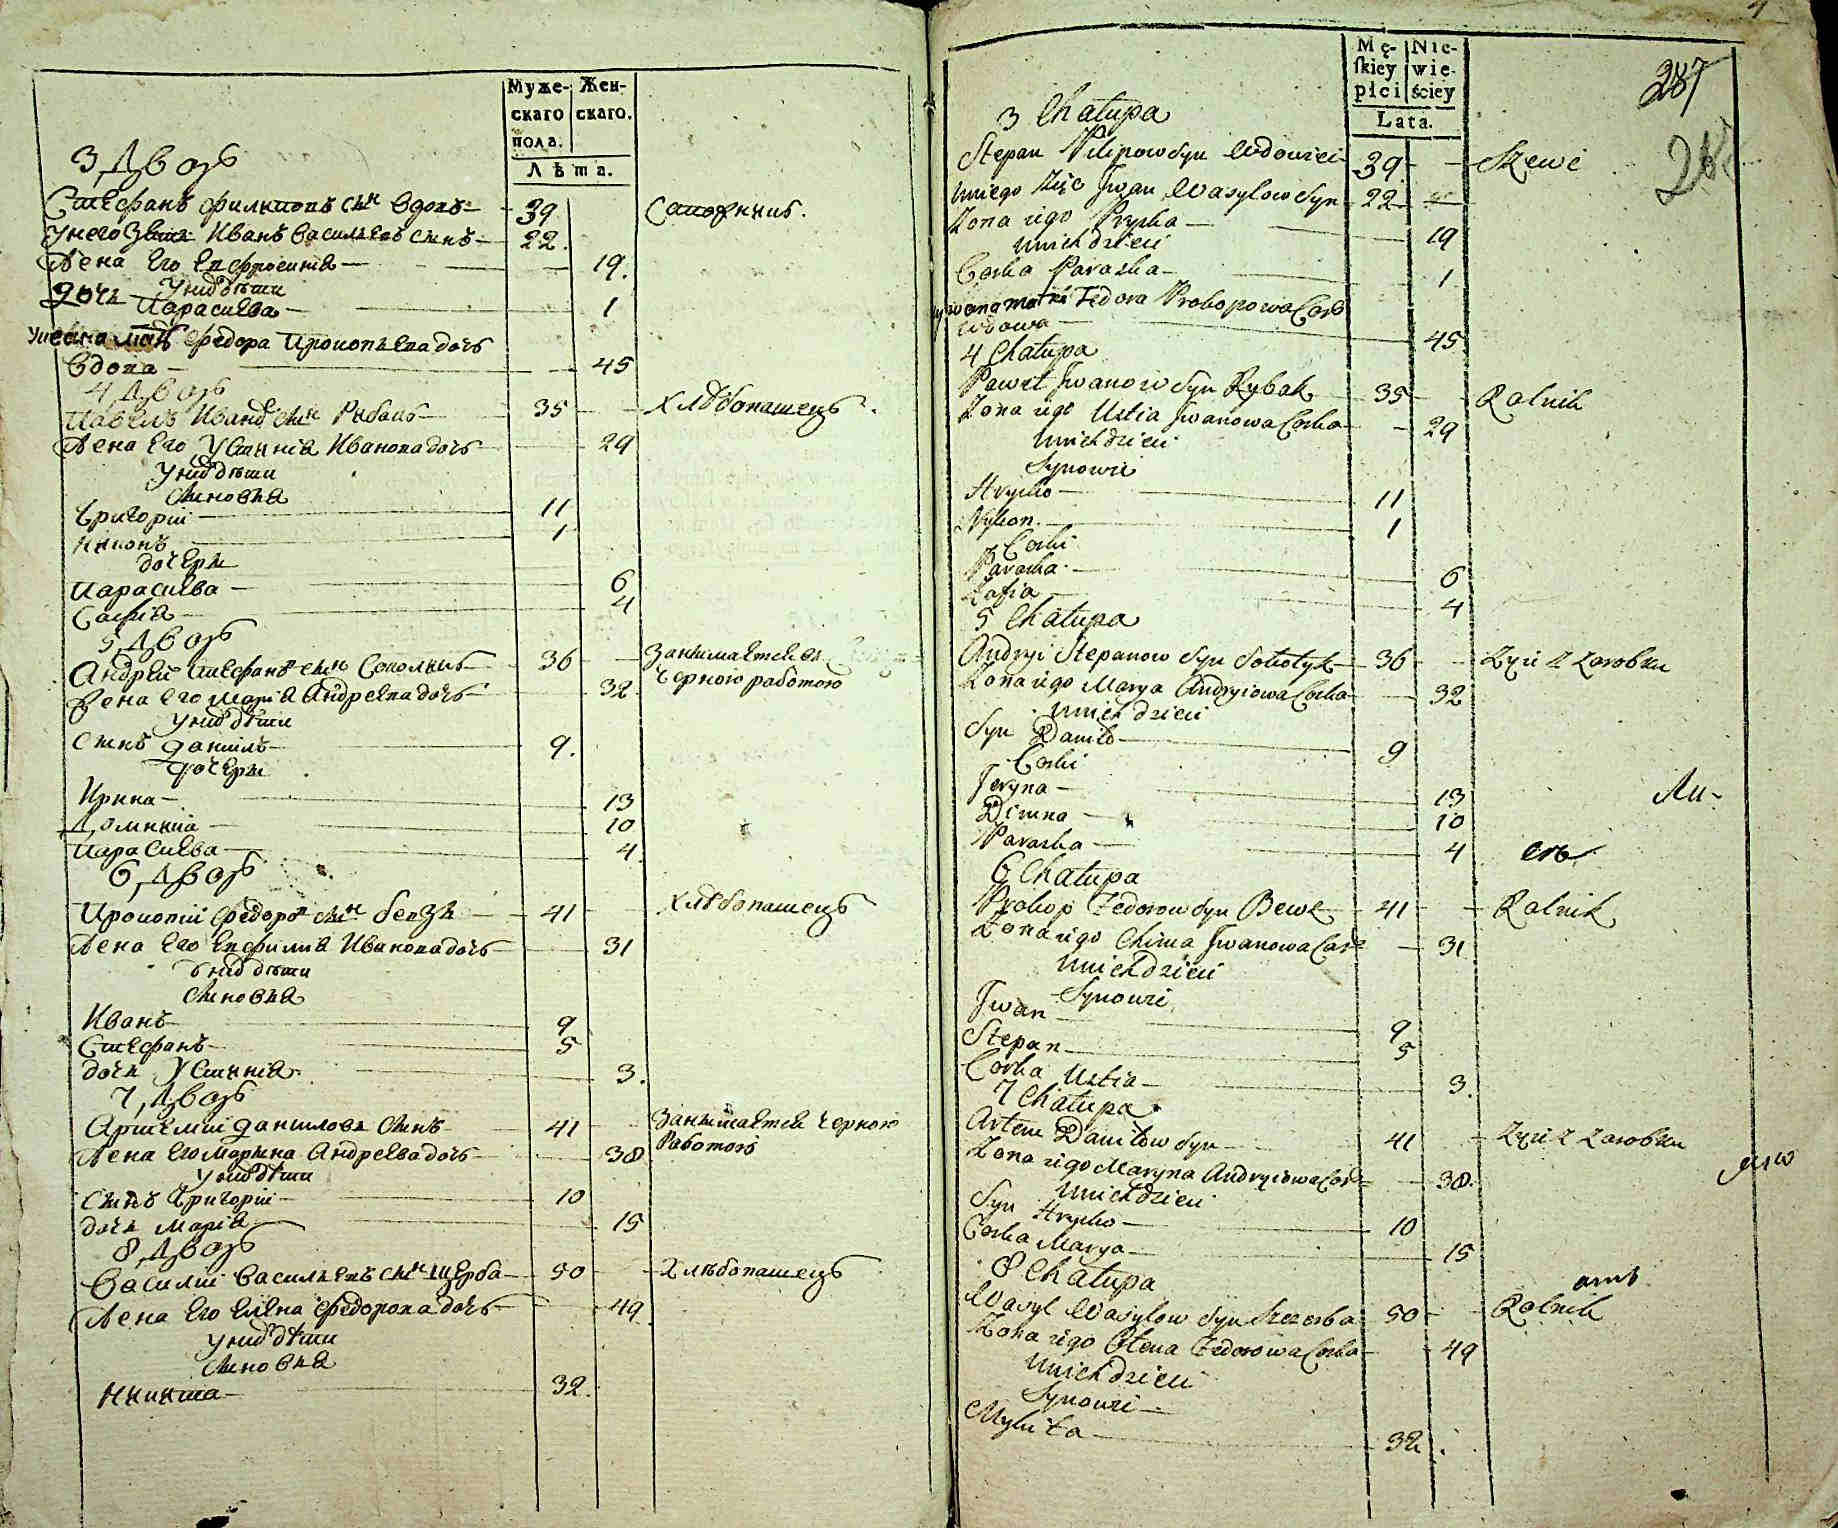 Муже- Жен-
скаго скаго.
пола.
Лѣта.
3 Дворъ
Стефанъ Филиповъ снъ вдовъ 39 Сапожникъ.
У него зять Иванъ Васильевъ сынъ 22.
Жена Его Евфросиния 19.
У нихъ дѣти
Дочь Парасиева 1
мать Федора Прокопьева дочь
Вдова 45
4 Дворъ
Павелъ Иванов снъ Рибакъ 35 Хлѣбопашецъ.
Жена Его Устиния Иванова дочь 29
У нихъ дѣти
Сыновья
Григорий 11
Никонъ 1
дочери
Парасиева 6
София 4
5 Дворъ
Андрей Стефановъ снъ 36 Занимается
Жена Его Мария Андреева дочь 32 Черною работою
У нихъ дѣти
Сынъ Данило 9.
Дочери
Ирина 13
Домникия 10
Парасиева 4
6 Дворъ
Прокопий Федоровъ снъ Бевзъ 41 Хлѣбопашецъ
Жена Его Евфимия Иванова дочь 31
У нихъ дѣти
Сыновья
Иванъ 9
Стефанъ 5
Дочь Устиния 3.
7 Дворъ
Артемий Данилова сынъ 41 Занимается Черною
Жена Его Марина Андреева дочь 38 Работою
У нихъ дѣти
Сынъ Григорий 10
Дочь Мария 15
8 Дворъ
Василий Васильевъ снъ Щерба 50 Хлѣбопашецъ
Жена Его Елена Федорова дочь 49
У нихъ дѣти
Сыновья
Никита 32
Mę- Nie-
ſkiey wie-
płci ściey
Lata.
287
3 Chałupa
Stepan Pilipow Syn Wdowiec 39 Szewc
Uniego Zięć Jwan Wasylow Syn 22
Zona iego Pryska 19
Unich dzieci
Corka Paraska 1
Jwana matka Fedora Prokopowa Cor
Wdowa 45
4 Chałupa
Paweł Jwanow Syn Rybak 35 Rolnik
Zona iego Ustia Jwanowa Corka 29
Unich dzieci
Synowie
Hryćko 11
Nykon 1
Corki
Paraska 6
Zofia 4
5 Chałupa
Andryi Stepanow Syn Sokołyk 36 Zyie z zarobku
Zona iego Marya Andryiowa Corka 32
Unich dzieci
Syn Daniło 9
Corki
Jeryna 13 Ли-
Dimna 10
Paraska 4 евъ
6 Chałupa
Prokop Fedorow Syn Bewz 41 Rolnik
Zona iego Chima Jwanowa Cor= 31
Unich dzieci
Synowie
Jwan 9
Stepan 5
Corka Ustia 3
7 Chałupa
Artem Daniłow Syn 41 Zyie z zarobku
Zona iego Maryna Andryiowa Cor= 38.
Unich dzieci
Syn Hryćko 10
Corka Marya 15
8 Chałupa
Wasyl Wasylow Syn Szczerba 50 Rolnik
Zona iego Olena Fedorowa Corka 49
Unich dzieci
Synowie
Mykita 32.